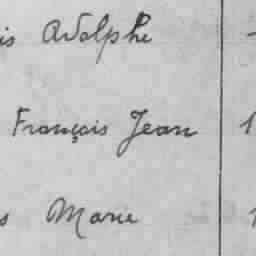 is Adolphe
François Jean 1
s Marie